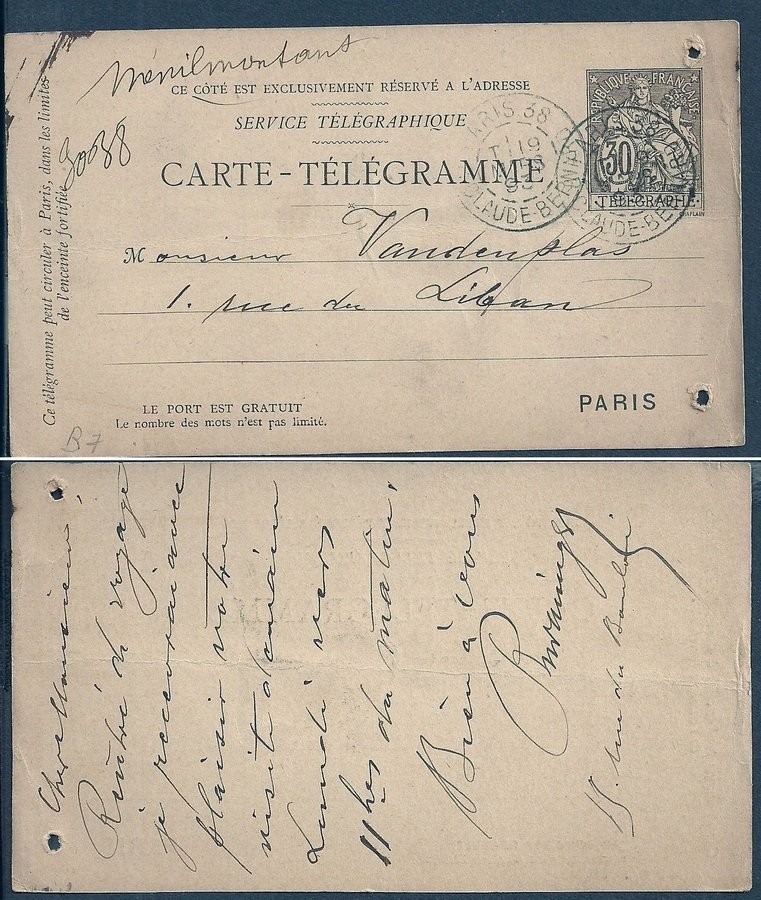 Ménilmontant
CE CÔTÉ EST EXCLUSIVEMENT RÉSERVÉ A L'ADRESSE
SERVICE TÉLÉGRAPHIQUE
CARTE-TÉLÉGRAMME
RÉPUBLIQUE FRANÇAISE
30
TÉLÉGRAPHE
CHAPLAIN
PARIS 38
19
CLAUDE-BERN
PARIS 38
CLAUDE-BERN
Ce télégramme peut circuler à Paris, dans les limites
de l'enceinte fortifiée
30038
Monsieur Vandenplas
1. rue du Liban
LE PORT EST GRATUIT
Le nombre des mots n'est pas limité.
PARIS
B7
Cher Monsieur,
Rentré de voyage
je recevrai avec
plaisir votre
visite demain
Lundi vers
11hes du matin,
Bien à vous
15. rue du Bouloi